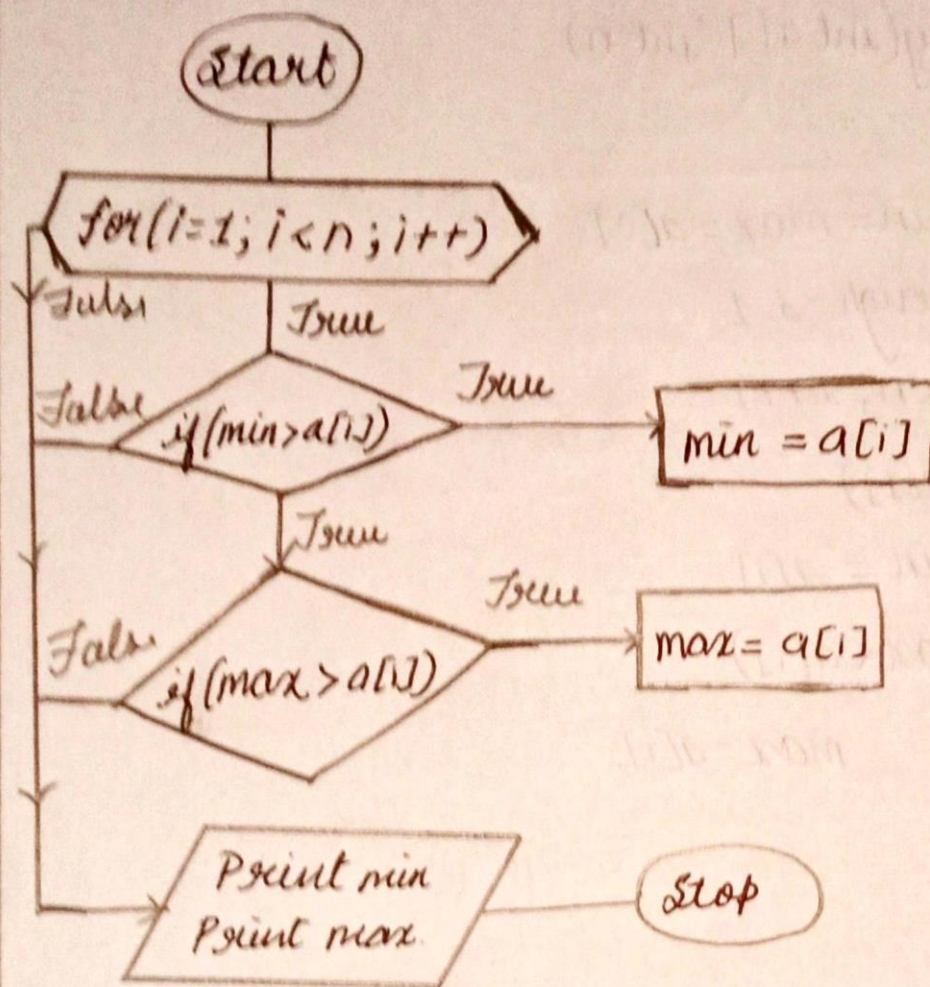 Start
for(i=1; i<n; i++)
False
True
False
True
if(min>a[i])
min = a[i]
True
True
False
if(max>a[i])
max= a[i]
Print min
Print max
Stop